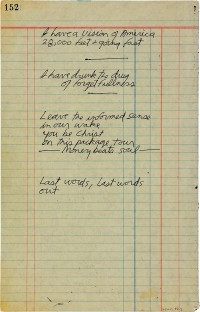 152
I have a vision of America
28,000 feet & going fast
I have drunk the drug
of forgetfulness
Leave the informed sense
in our wake
You be Christ
On this package tour
— Money beats soul —
Last words, Last words
out